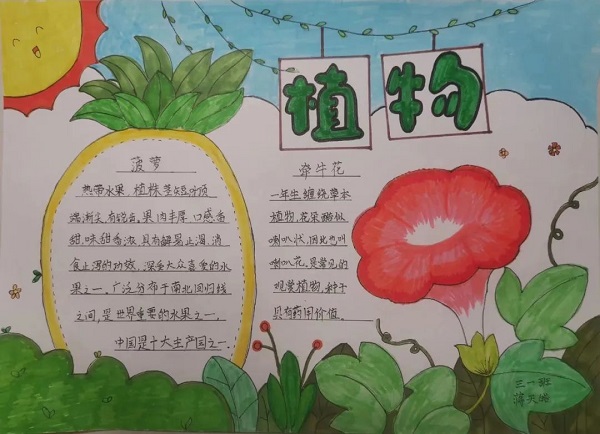 植物
菠萝
热带水果,植株茎短,叶顶
端渐尖,有锐齿,果肉丰厚,口感香
甜,味甜香浓,具有解暑止渴,消
食止泻的功效,深受大众喜爱的水
果之一。广泛分布于南北回归线
之间,是世界重要的水果之一,
中国是十大主产国之一.
牵牛花
一年生缠绕草本
植物,花朵酷似
喇叭状,因此也叫
喇叭花,是常见的
观赏植物,种子
具有药用价值。
三一班